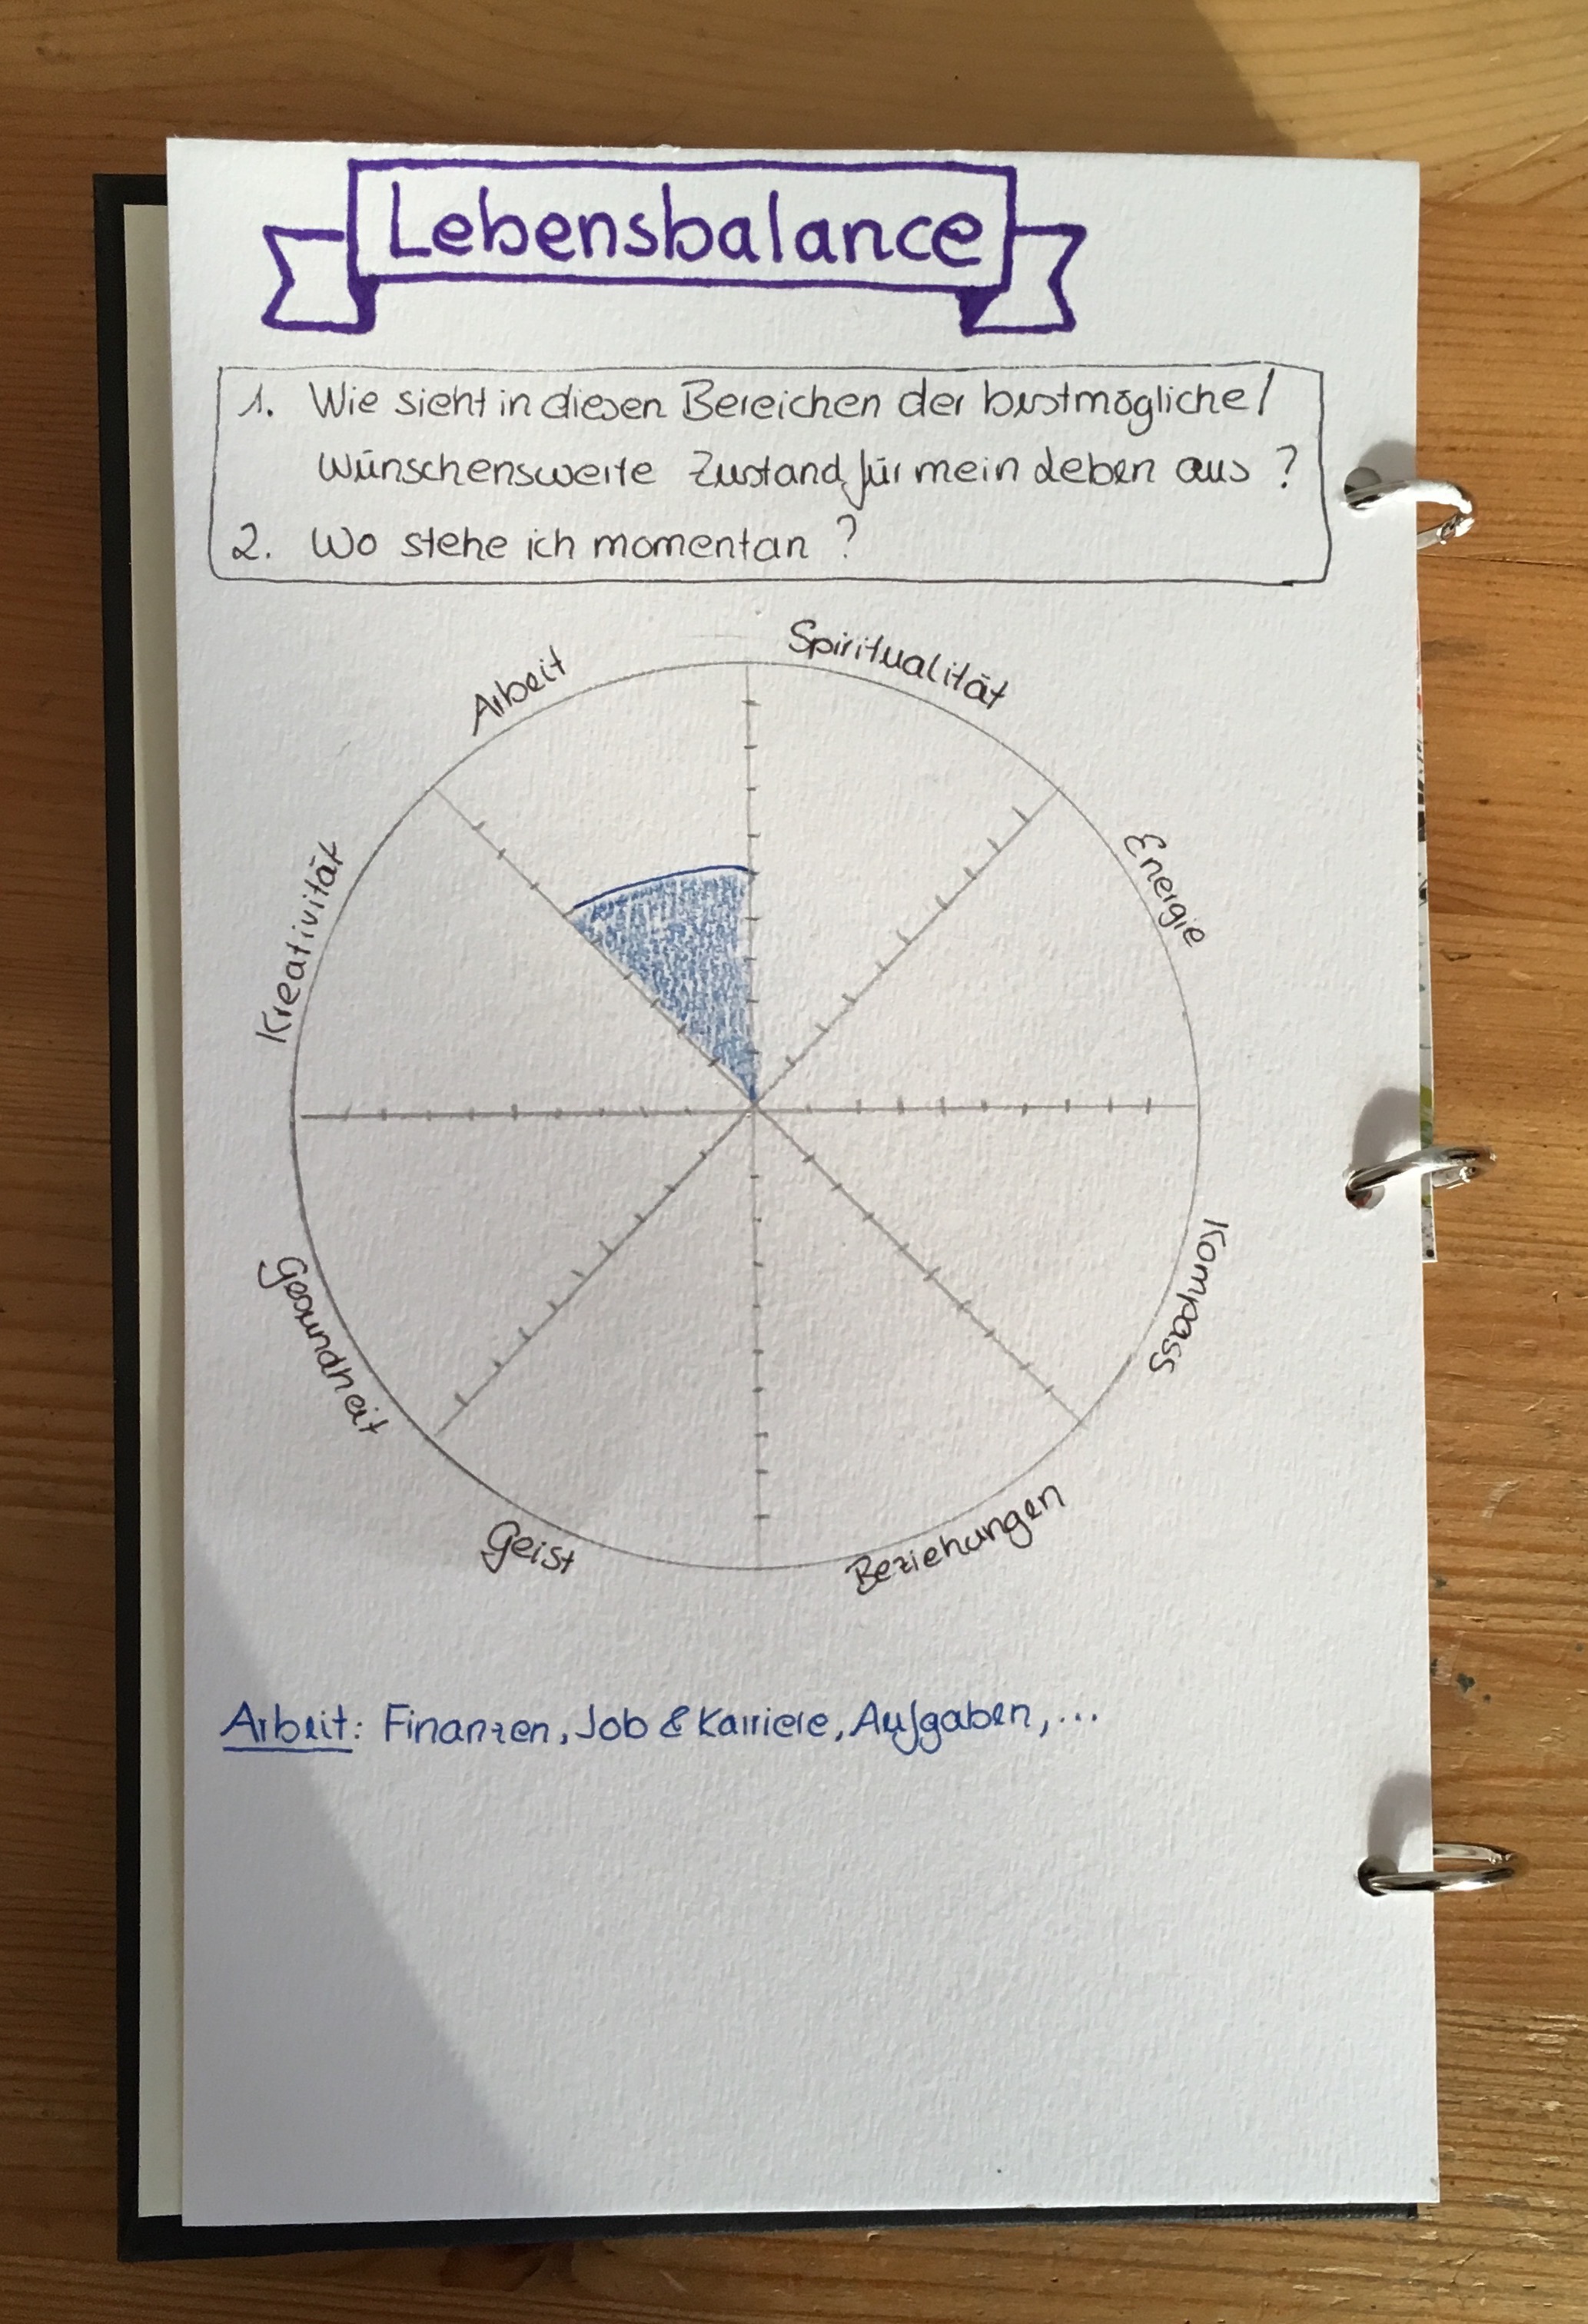 Lebensbalance
1. Wie sieht in diesen Bereichen der bestmögliche/
wünschenswerte Zustand für mein Leben aus?
2. Wo stehe ich momentan?
Arbeit
Spiritualität
Kreativität
Energie
Gesundheit
Kompass
Geist
Beziehungen
Arbeit: Finanzen, Job & Karriere, Aufgaben, ...